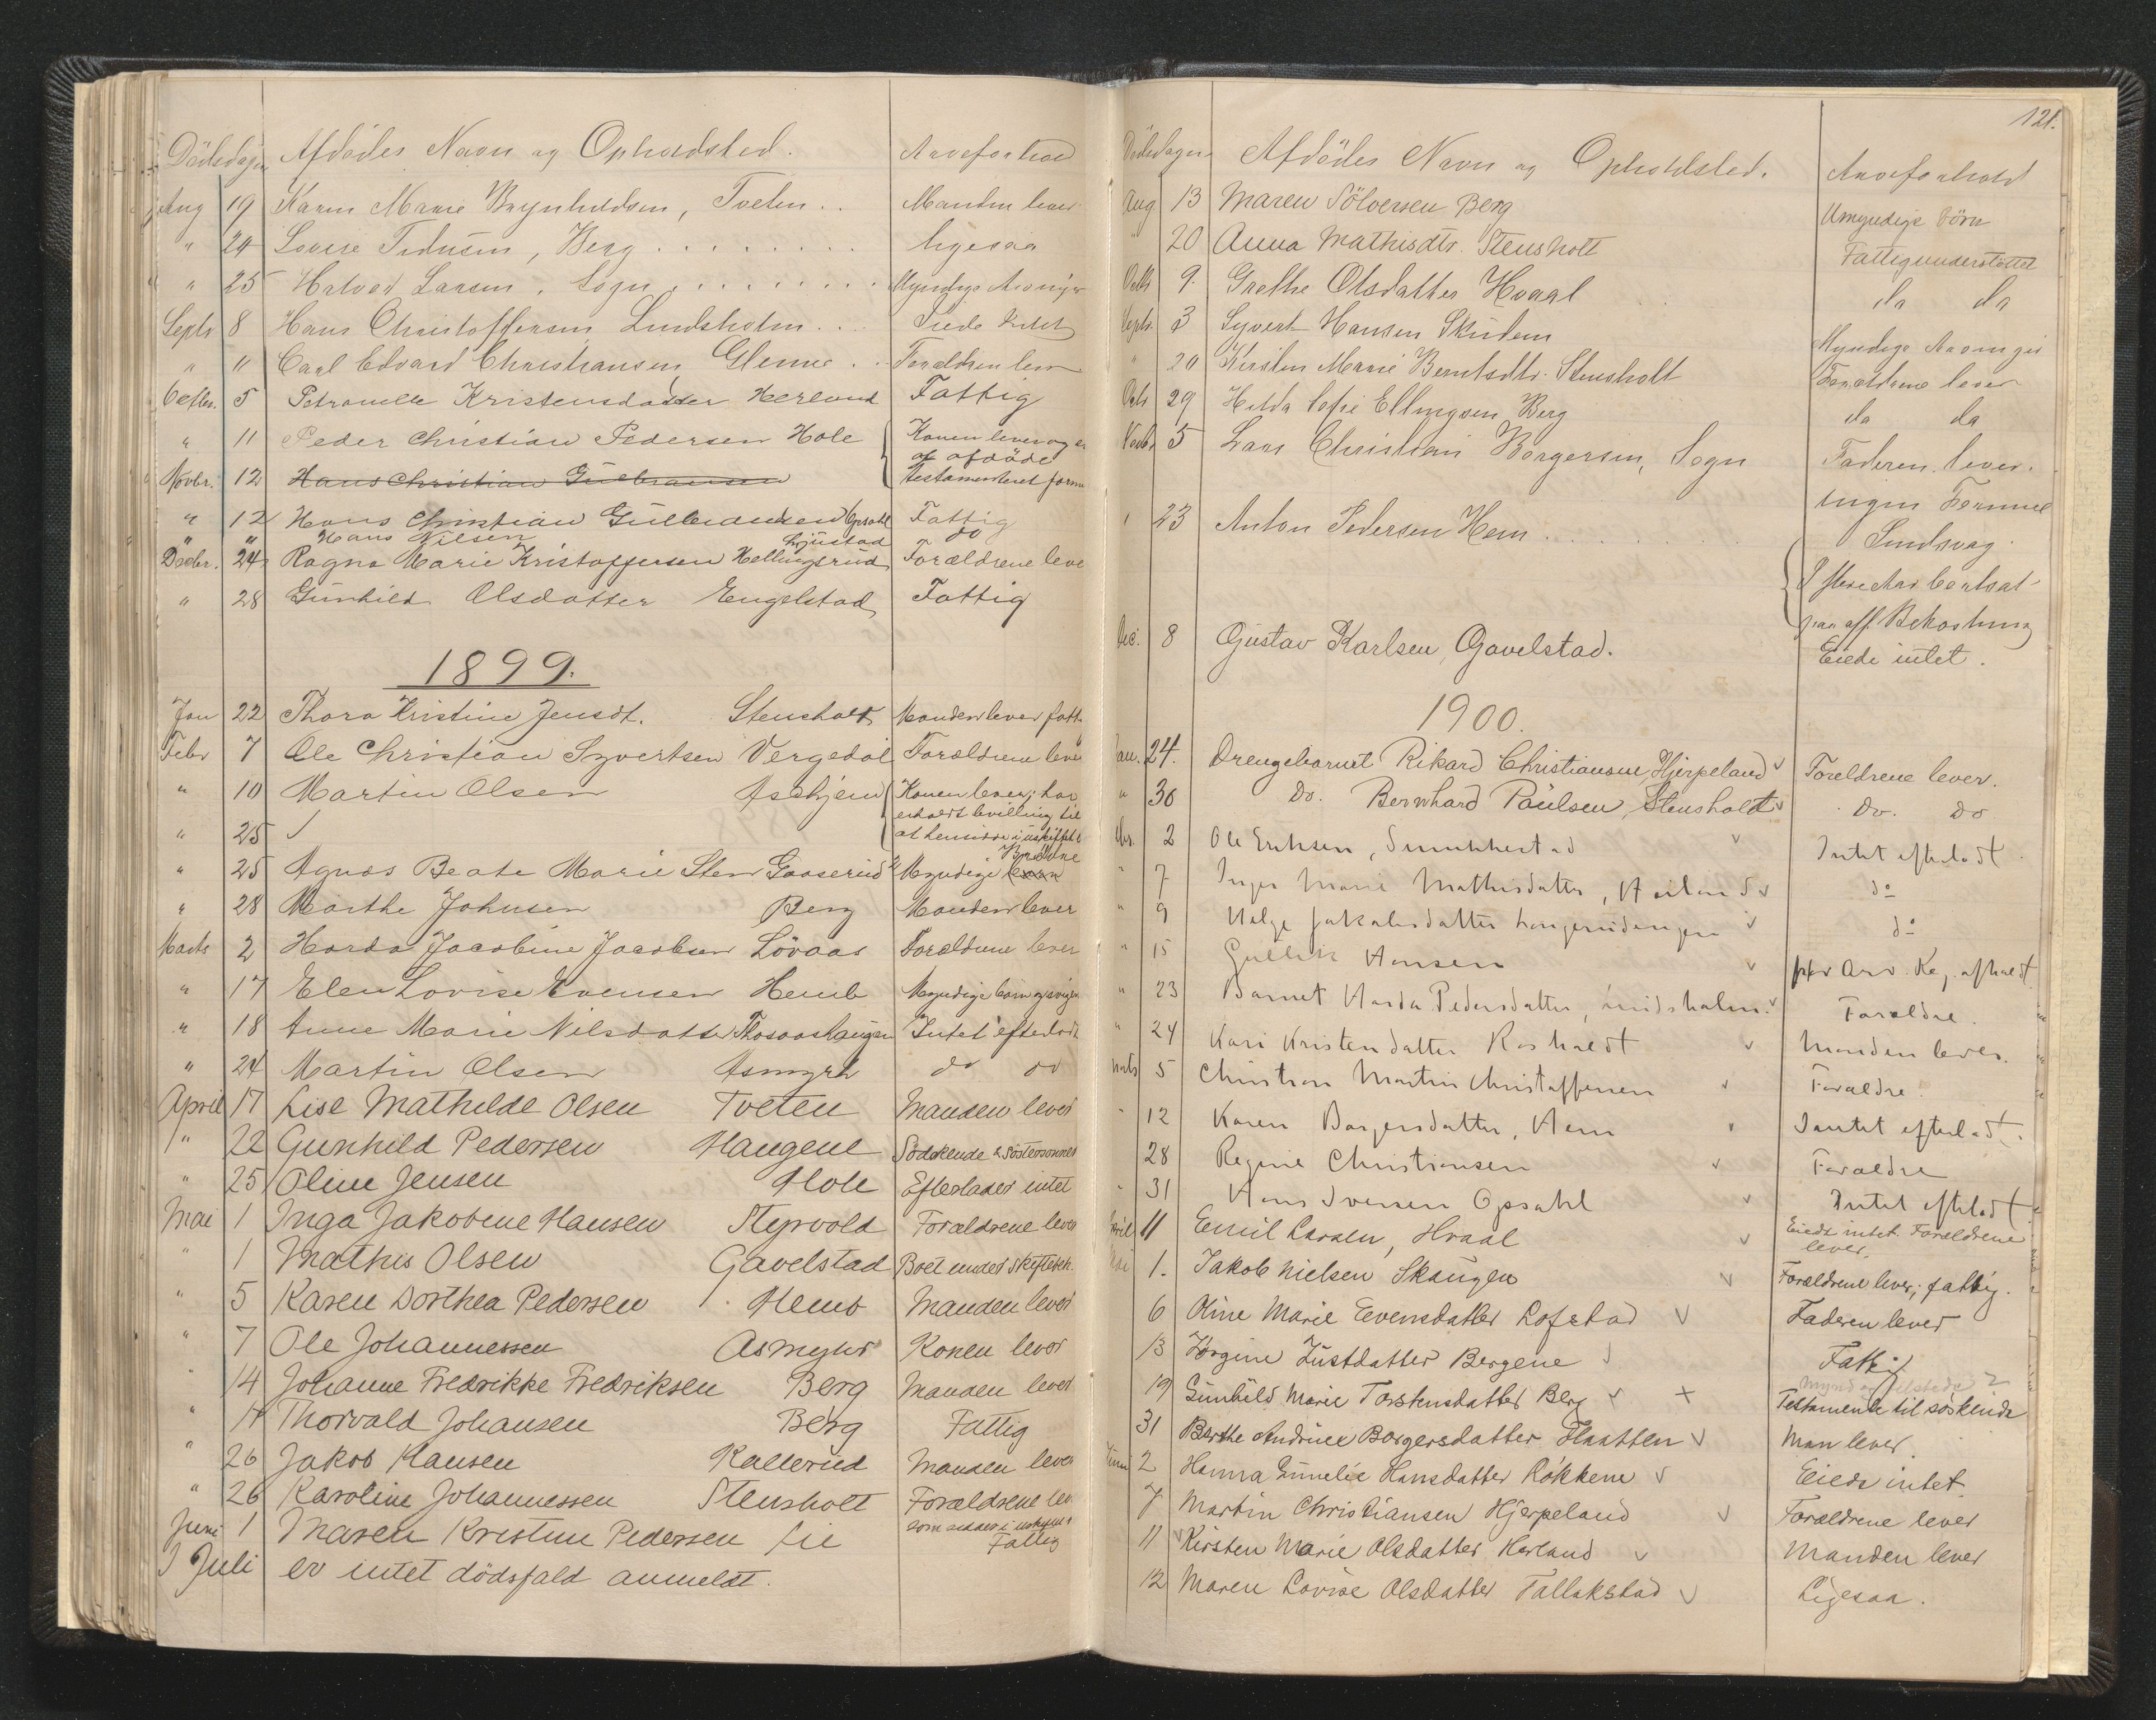 Afdödes Navn og Opholdsted.
Aug 19 Karen Marie Brynhildsen, Tveten . . Manden lever
" 24 Lovise , Berg . . . . . . . ligesaa
" 25 Halvor Larsen, Sogn . . . . . . . Myndige Arvinger
Septr 8 Hans Christoffersen Lindsholm . . Eiede Intet
" " Carl Edvard Christiansen, Glenne . . Forældren lever
Octbr. 5 Petronelle Kristensdatter Herland Fattig
" 11 Peder Christian Pedersen Hole Konen lever og er
af afdöde
testamenteret
Novbr. 12 Hans Christian Gulbransen
" 12 Hans Christian Gulbrandsen Opsahl Fattig
" " Hans Nilsen do
Decbr. 24 Ragna Marie Kristoffersen Hellingsrud Forældrene leve
" 28 Gunhild Olsdatter Engelstad Fattig
1899.
Jan 22 Thora Kristine Jensdt. Stensholt Manden lever fatt
Febr 7 Ole Christian Syvertsen Vergedal Forældrene leve
" 10 Martin Olsen Askjem Konen lever; har
erholdt bevilling til
at hensidde i uskiftet
" 25
" 25 Agnes Beate Marie Sten Gaaserud Myndige Brödre
" 28 Marthe Johnsen Berg Manden lever
Marts 2 Harda Jacobine Jacobsen Lövaas Forældrene lever
" 17 Elen Lovise Evensen Hemb Myndige börn og
" 18 Anne Marie Nilsdatter Thosaashaugen Intet efterladt
" 24 Martin Olsen Asmyhr do do
April 17 Lise Mathilde Olsen Tveten Manden lever
" 22 Gunhild Pedersen Haugene Södskende & Söstersönner
" 25 Oline Jensen Hole Efterlader intet
Mai 1 Inga Jakobene Hansen Styrvold Forældrene lever
" 1 Mathis Olsen Gavelstad Boet under skiftebeh.
" 5 Karen Dorthea Pedersen Hemb Manden lever
" 7 Ole Johannessen Asmyhr Konen lever
" 14 Johanne Fredrikke Fredriksen Berg Manden lever
" 17 Thorvald Johansen Berg Fattig
" 26 Jakob Hansen Kallerud Manden lever
" 26 Karoline Johannessen Stensholt Forældrene lev
Juni 1 Maren Kristine Pedersen Lie som sidder i uskiftet
Fattig
I Juli er intet dödsfald anmeldt.
121.
Dödsdagen Afdödes Navn og Opholdsted. Arveforhold
Aug 13 Maren Sölversen Berg Umyndige Börn
" 20 Anna Mathisdtr. Stensholt Fattigunderstöttet
9. Grethe Olsdatter Hvaal do do
Septr. 3 Syvert Hansen Skindem Myndige Arvinger
" 20 Kirsten Marie Berntsdtr. Stensholt Forældrene lever
Octr 29 Hilda Sofie Ellingsen Berg do do
Novbr 5 Lars Christian Borgersen, Sogn Faderen lever.
Ingen Formue
" 23 Anton Pedersen Hem . . . . . . Sindsvag
paa off. Bekostning
Dec. 8 Gustav Karlsen, Gavelstad. Eiede intet.
1900.
Jan. 24. Drengebarnet Rikard Christiansen, Hjerpeland Forældrene lever.
" 30 Do. Bernhard Paulsen, Stensholdt Do. Do
2 Ole Eriksen, Intet efterladt
" 7 Inger Marie Mathisdatter, do
" 9 Helge Jakobsdatter do
" 15 Gullik Hansen
" 23 Barnet Harda Pedersdatter, Forældre.
" 24 Kari Kristendatter Rosholdt Manden lever.
Marts 5 Christian Martin Christoffersen Forældre
" 12 Karen Borgersdatter, Hem Intet efterladt.
28 Regine Christiansen Forældre
" 31 Hans Iversen Opsahl Intet efterladt
April 11 Emil Larsen, Hvaal Eiede intet. Forældrene
lever.
Mai 1. Jakob Nielsen Skaugen Forældrene lever; fattig.
6 Oline Marie Evensdatter Lofstad Faderen lever
13 Jörgine Justdatter Bergene Fattig
19 Gunhild Marie Torstensdatter Berg + Testamente til söskende
31 Berthe Andrine Borgersdatter Flaatten Man lever
Juni 2 Hanna Emelie Hansdatter Rökkene Eiede intet
7 Martin Christiansen Hjerpeland Forældrene lever
11 Kirsten Marie Olsdatter Herland Manden lever
12 Maren Lovise Olsdatter Tallakstad Ligesaa.